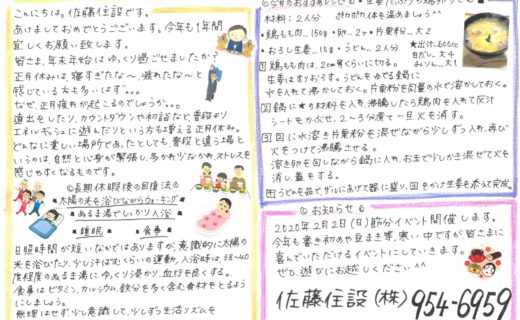 こんにちは。佐藤住設です。
あけましておめでとうございます。今年も1年間
宜しくお願い致します。
皆さま、年末年始はゆっくり過ごせましたか?
正月休みは、寝すぎたな〜、疲れたな〜と
感じている方も多いはず…。
なぜ、正月疲れが起こるのでしょうか。。。
遠出をしたり、カウントダウンや初詣など、普段より
エネルギッシュに遊んだりという方も増える正月休み。
どんなに楽しい場所であったとしても普段と違う場と
いうのは、自然と身が緊張し、多かれ少なかれストレスを
感じやすくなるものです。
◎長期休暇後の回復法◎
★太陽の光を浴びながらウォーキング
★ぬるま湯でしっかり入浴
★睡眠 ★食事
日照時間が短いなかではありますが、意識的に太陽の
光を浴びたり、少し汗ばむくらいの運動、入浴時は、38-40
度程度のぬるま湯にゆっくり浸かり、血行を良くする。
食事はビタミン、カルシウム、鉄分を多く含む食材をとるよう
にしましょう。
無理はせず少し意識して、少しずつ生活リズムを
◎今月のおすすめレシピ◎
材料:2人分
・鶏もも肉…150g ・卵…2ヶ ・片栗粉…大2
・おろし生姜…10g ・うどん…2人分
★出汁…600cc
白だし…大4
みりん…大1
① 鶏もも肉は、2cm角くらいに切る。
生姜はすりおろす。うどんをゆでる鍋に
水を入れて沸かしておく。片栗粉を同量の水で溶かしておく。
② 鍋に★の材料を入れ、沸騰したら鶏肉を入れて灰汁
シートをかぶせ、2〜3分煮て一旦火を消す。
③ ②に水溶き片栗粉を混ぜながら少しずつ入れ、再び
火をつけて沸騰させる。
溶き卵を回しながら鍋に入れ、お玉で少しかき混ぜて火を
消し、蓋をする。
④ うどんを茹でザルにあげて器に盛り、③をかけ生姜を添えて完成。
◎お知らせ◎
2020年2月2日(日)節分イベント開催します。
今年も書き初めや豆まき等、寒い中ですが皆さまに
喜んでいただけるイベントにしていきます。
ぜひ、遊びにお越しください^^
佐藤住設(株) 954-6959